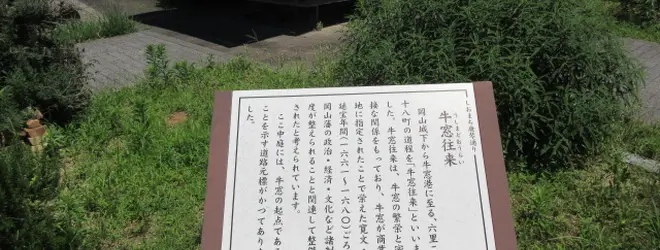 しおまち唐琴通り
うしまどおうらい
牛窓往来
岡山城下から牛窓港に至る、六里二
十八町の道程を「牛窓往来」といいま
した。牛窓往来は、牛窓の繁栄と密
接な関係をもっており、牛窓が商業
地に指定されたことで栄えた寛文
延宝年間(一六六一〜一六八〇)ごろ
岡山藩の政治・経済・文化など諸制
度が整えられることと関連して整
されたと考えられています。
ここ中庭には、牛窓の起点であ
ることを示す道路元標がかつてあり
した。